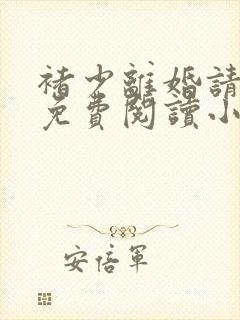 褚少離婚請
免費閱讀小
安倍軍